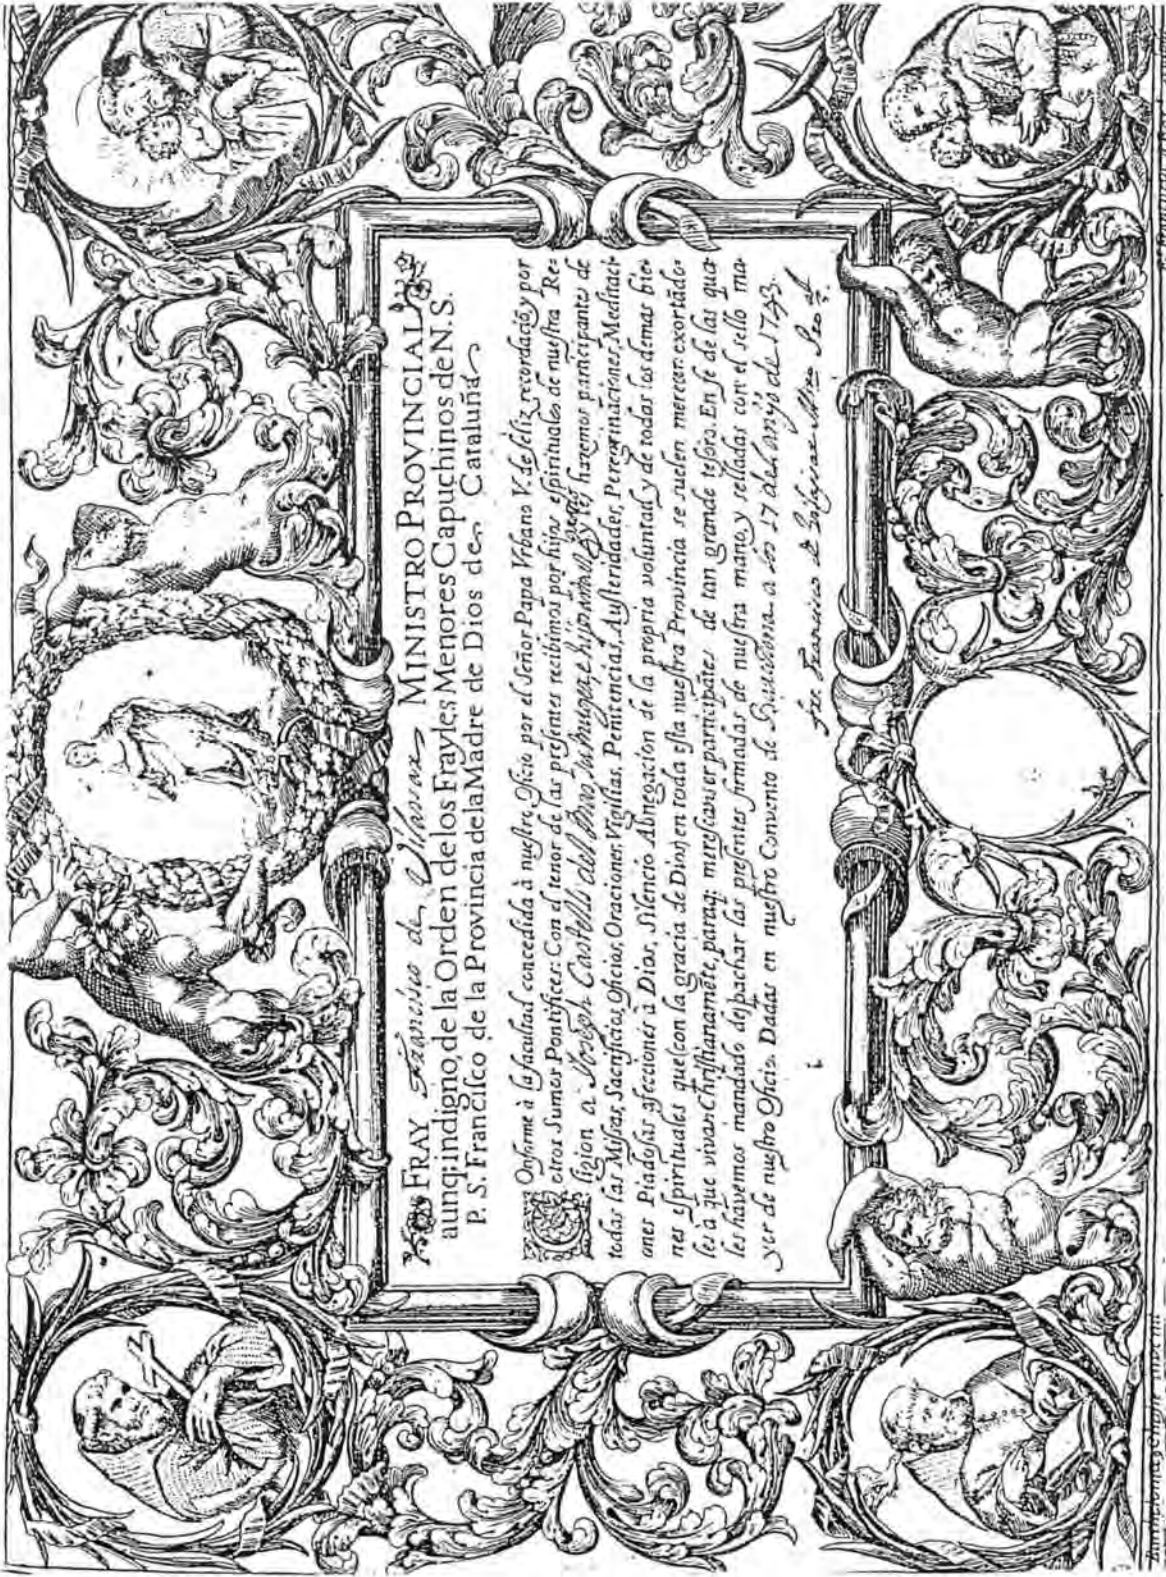 FRAY Francisco de Vilanz MINISTRO PROVINCIAL
aunq; indigno, de la Orden de los Frayles Menores Capuchinos de N. S.
P. S. Francisco de la Provincia dela Madre de Dios de Cataluña
COnforme à la facultad concedida à nuestro Oficio por el Señor Papa Vrbano V. de feliz recordaciõ, y por
otros Sumos Pontifices: Con el tenor de las presentes recibimos por hijos espirituales de nuestra Re=
ligion a Joseph Castells del Bruo, su muger, e hijos y les hazemos participantes de
todas las Missas, Sacrificios, Oficios, Oraciones, Vigilias, Penitencias, Austeridades, Peregrinaciones, Meditaci=
ones Piadosas afecciones à Dios, Silencio Abnegacion de la propria voluntad, y de todas las demas bie=
nes espirituales que (con la gracia de Dios) en toda esta nuestra Provincia se suelen mercar: exortãdo=
les à que vivan Christianamẽte, paraq; merescan ser participãtes de tan grande tesoro. En fe de las qua=
les havemos mandado despachar las presentes firmadas de nuestra mano, y selladas con el sello ma=
yor de nuestro Oficio. Dadas en nuestro Convento de Barcelona a los 17 del año de 1743.
fr. Francisco de